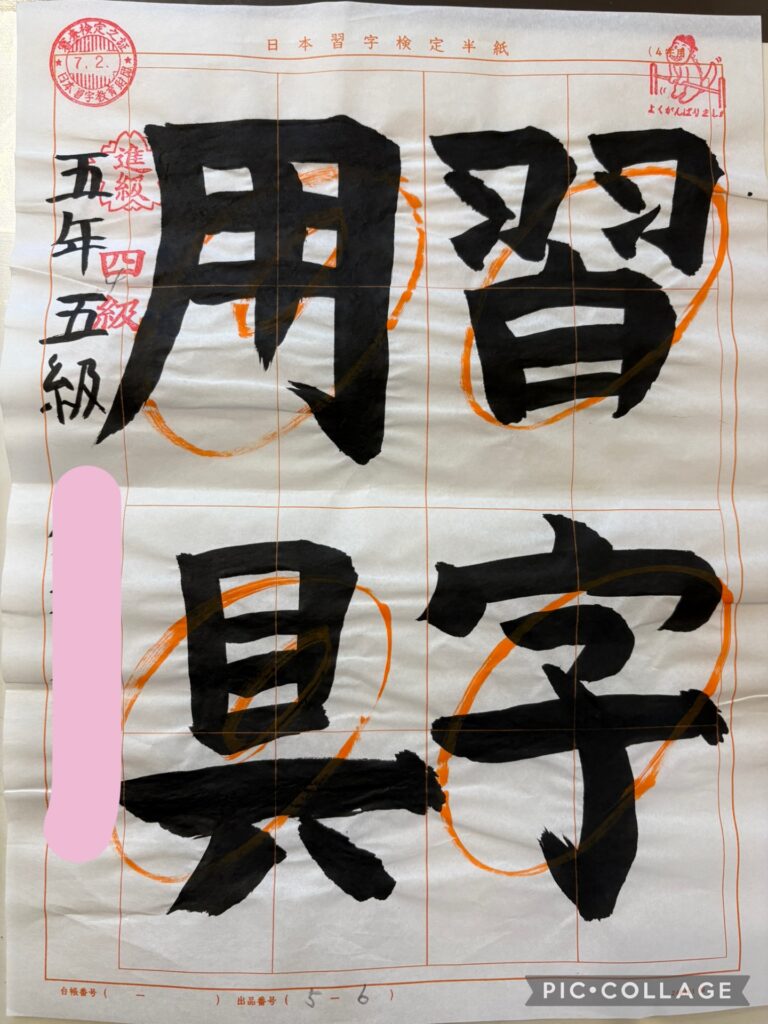 日本習字検定半紙
審査検定之証
7.2.
日本習字教育財団
よくがんばりました
習字
用具
進級
四級
五年五級
台帳番号(　－　)
出品番号(5－6)
PIC•COLLAGE